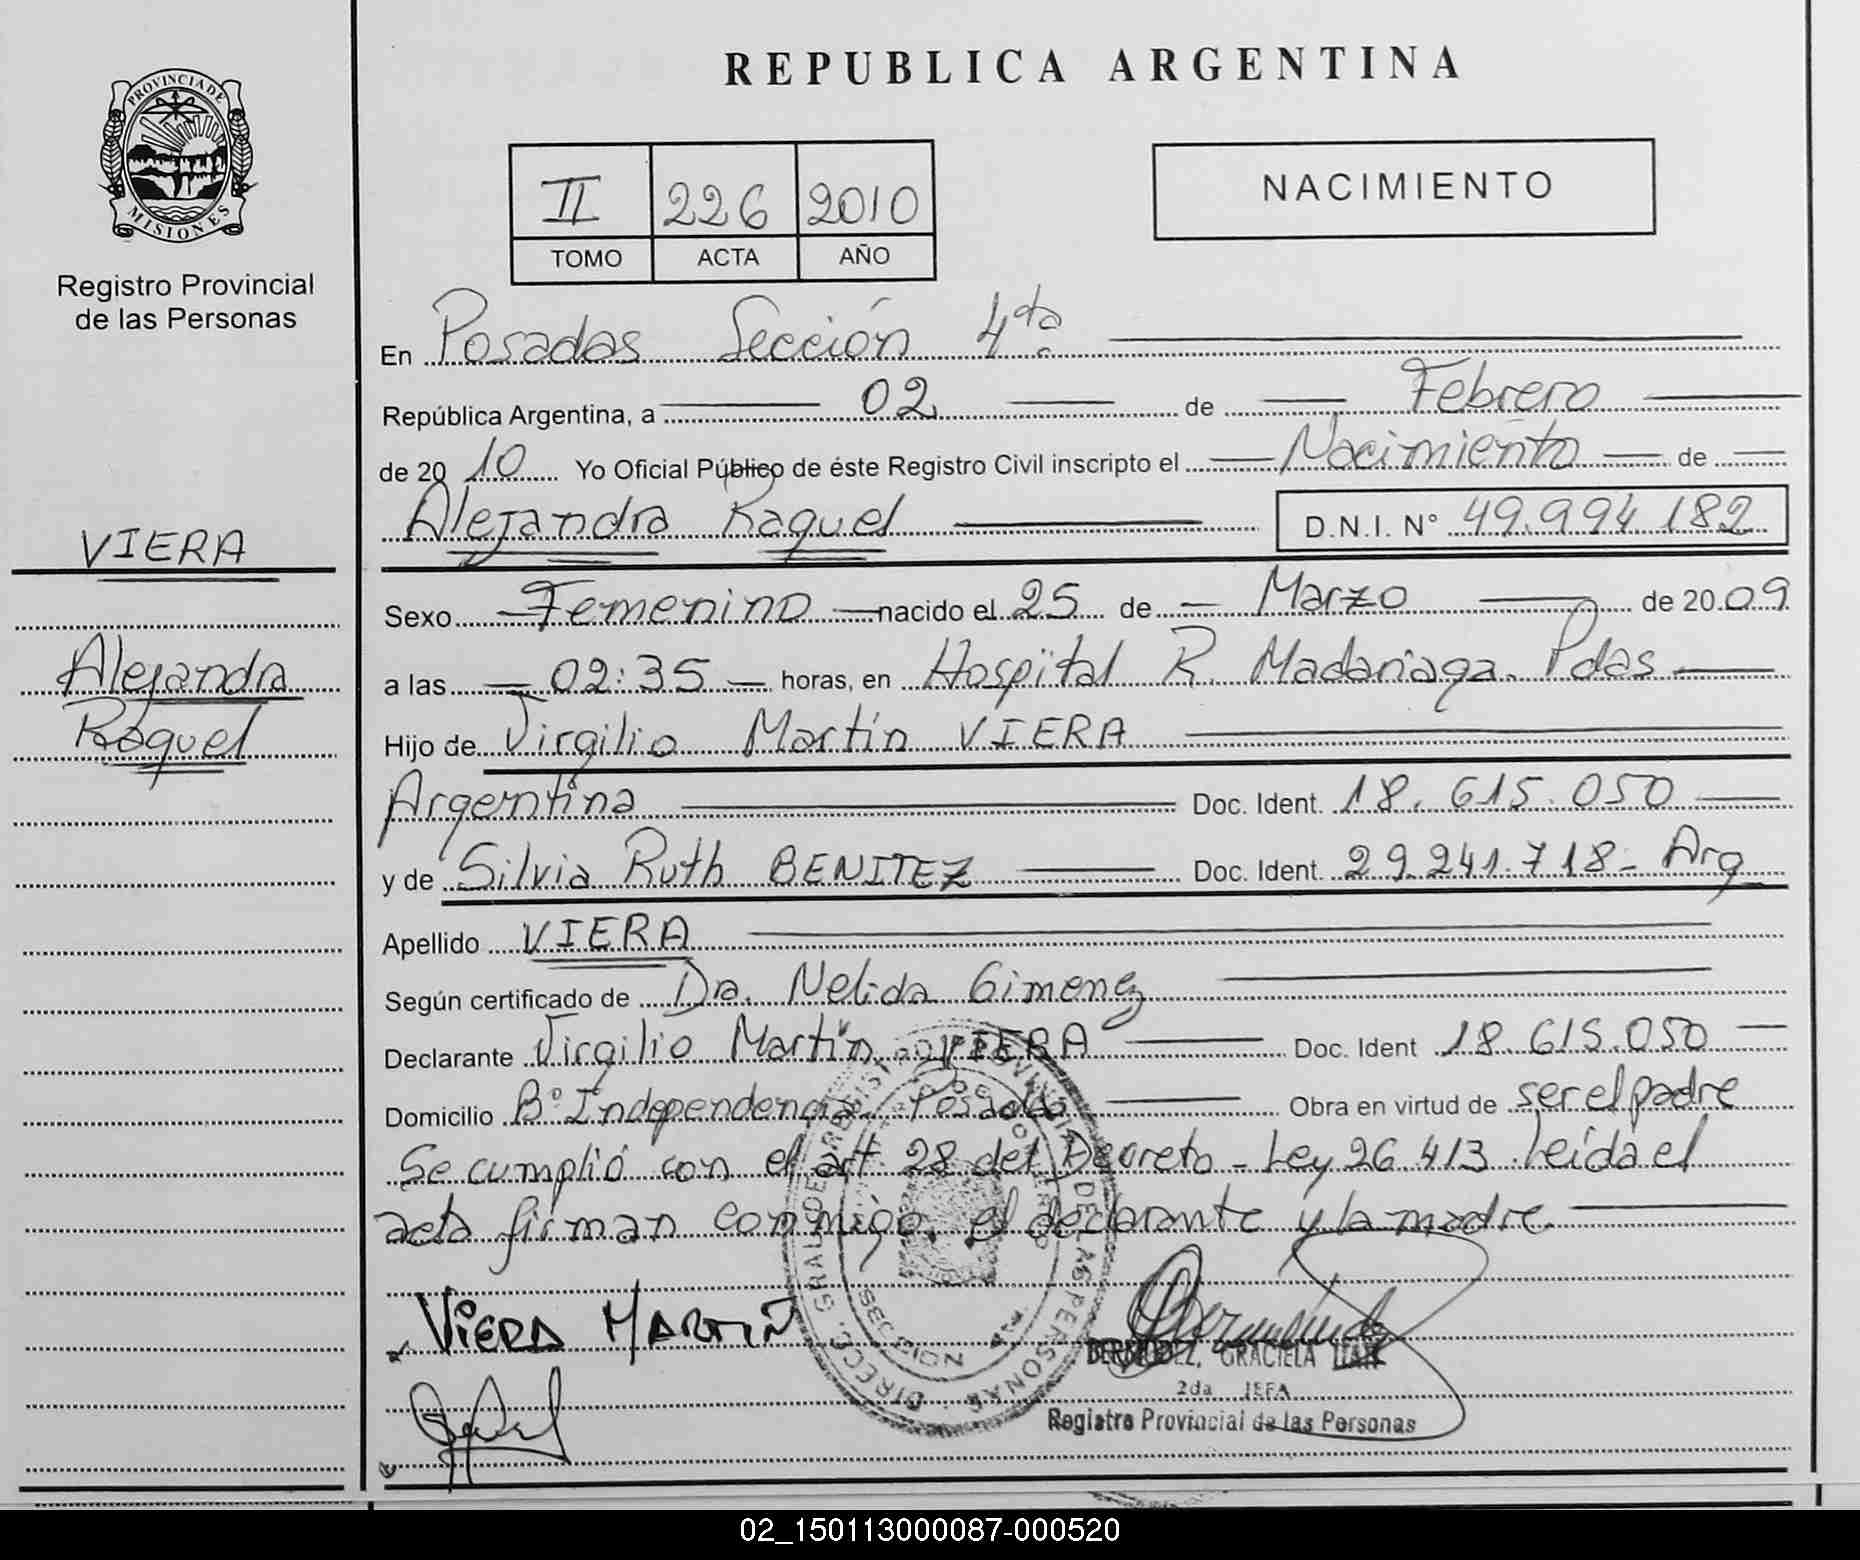 PROVINCIA DE
MISIONES
Registro Provincial
de las Personas
VIERA
Alejandra
Raquel
REPUBLICA ARGENTINA
II 226 2010
TOMO ACTA AÑO
NACIMIENTO
En Posadas Sección 4ta
República Argentina, a 02 de Febrero
de 2010 Yo Oficial Público de éste Registro Civil inscripto el Nacimiento de
Alejandra Raquel D.N.I. N° 49.994.182
Sexo Femenino nacido el 25 de Marzo de 2009
a las 02:35 horas, en Hospital R. Madariaga. Pdas
Hijo de Virgilio Martín VIERA
Argentina Doc. Ident. 18.615.050
y de Silvia Ruth BENITEZ Doc. Ident. 29.241.718- Arg
Apellido VIERA
Según certificado de Dra. Nelida Gimenez
Declarante Virgilio Martín VIERA Doc. Ident 18.615.050
Domicilio B° Independencia, Posadas Obra en virtud de ser el padre
Se cumplió con el art. 28 del Decreto - Ley 26.413 leída el
acta firman conmigo, el declarante y la madre
VIERA MARTIN
DIRECC. GRAL. DE REGISTRO PROVINCIAL DE LAS PERSONAS
GRACIELA
2da JEFA
Registro Provincial de las Personas
02_150113000087-000520